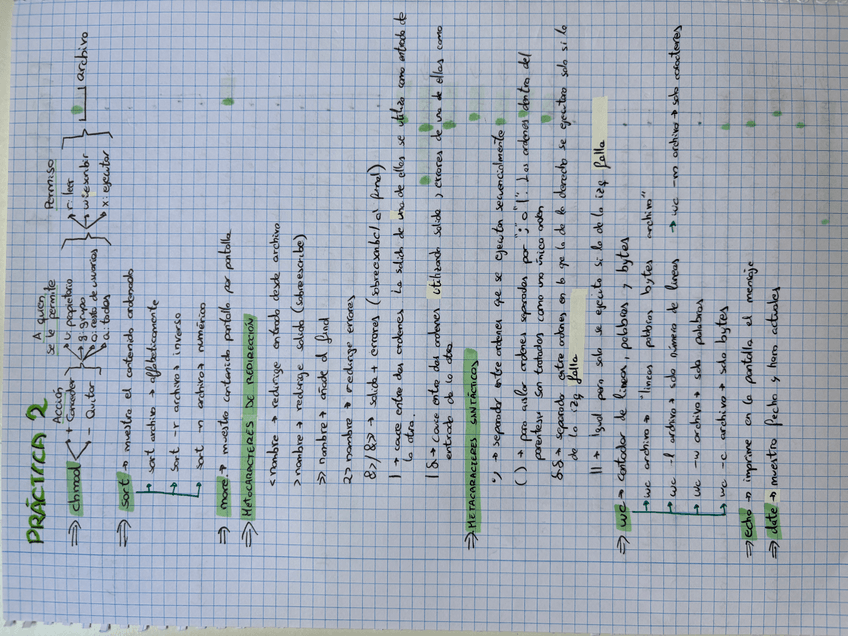 PRÁCTICA 2
A quien
Acción se le permite Permiso
⇒ chmod + Conceder u: propietario r: leer archivo
- Quitar g: grupo w: escribir
o: resto de usuarios x: ejecutar
a: todos
⇒ sort → muestra el contenido ordenado
→ sort archivo → alfabeticamente
→ sort -r archivo → inverso
→ sort -n archivo → numérico
⇒ more → muestra contenido pantalla por pantalla
⇒ METACARACTERES DE REDIRECCIÓN
< nombre → redirige entrada desde archivo
> nombre → redirige salida (sobreescribe)
>> nombre → añade al final
2> nombre → redirige errores
&>/&>> → salida + errores (sobreescribe/al final)
| → cauce entre dos ordenes. La salida de una de ellas se utiliza como entrada de
la otra.
|& → cauce entre dos ordenes utilizando salida y errores de una de ellas como
entrada de la otra
⇒ METACARACTERES SINTÁCTICOS
; → separador entre ordenes que se ejecutan secuencialmente
( ) → para aislar ordenes separadas por ";" o "|". Las ordenes dentro del
parentesis son tratadas como una única orden
&& → separador entre ordenes en la que la de la derecha se ejecutara solo si la
de la izq falla
|| → igual pero solo se ejecuta si la de la izq falla
⇒ wc → contador de lineas, palabras y bytes
→ wc archivo → "lineas palabras bytes archivo"
→ wc -l archivo → solo número de lineas → wc -m archivo → solo caracteres
→ wc -w archivo → solo palabras
→ wc -c archivo → solo bytes
⇒ echo → imprime en la pantalla el mensaje
⇒ date → muestra fecha y hora actuales